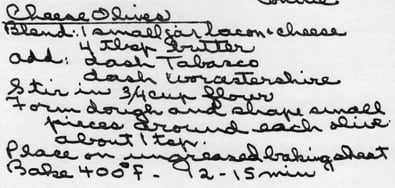 Cheese Olives
Blend: 1 small jar bacon & cheese
4 tbsp butter
add: dash Tabasco
dash Worcestershire
Stir in 3/4 cup flour
Form dough and shape small
pieces around each olive
about 1 tsp.
Place on ungreased baking sheet
Bake 400°F - 12-15 min